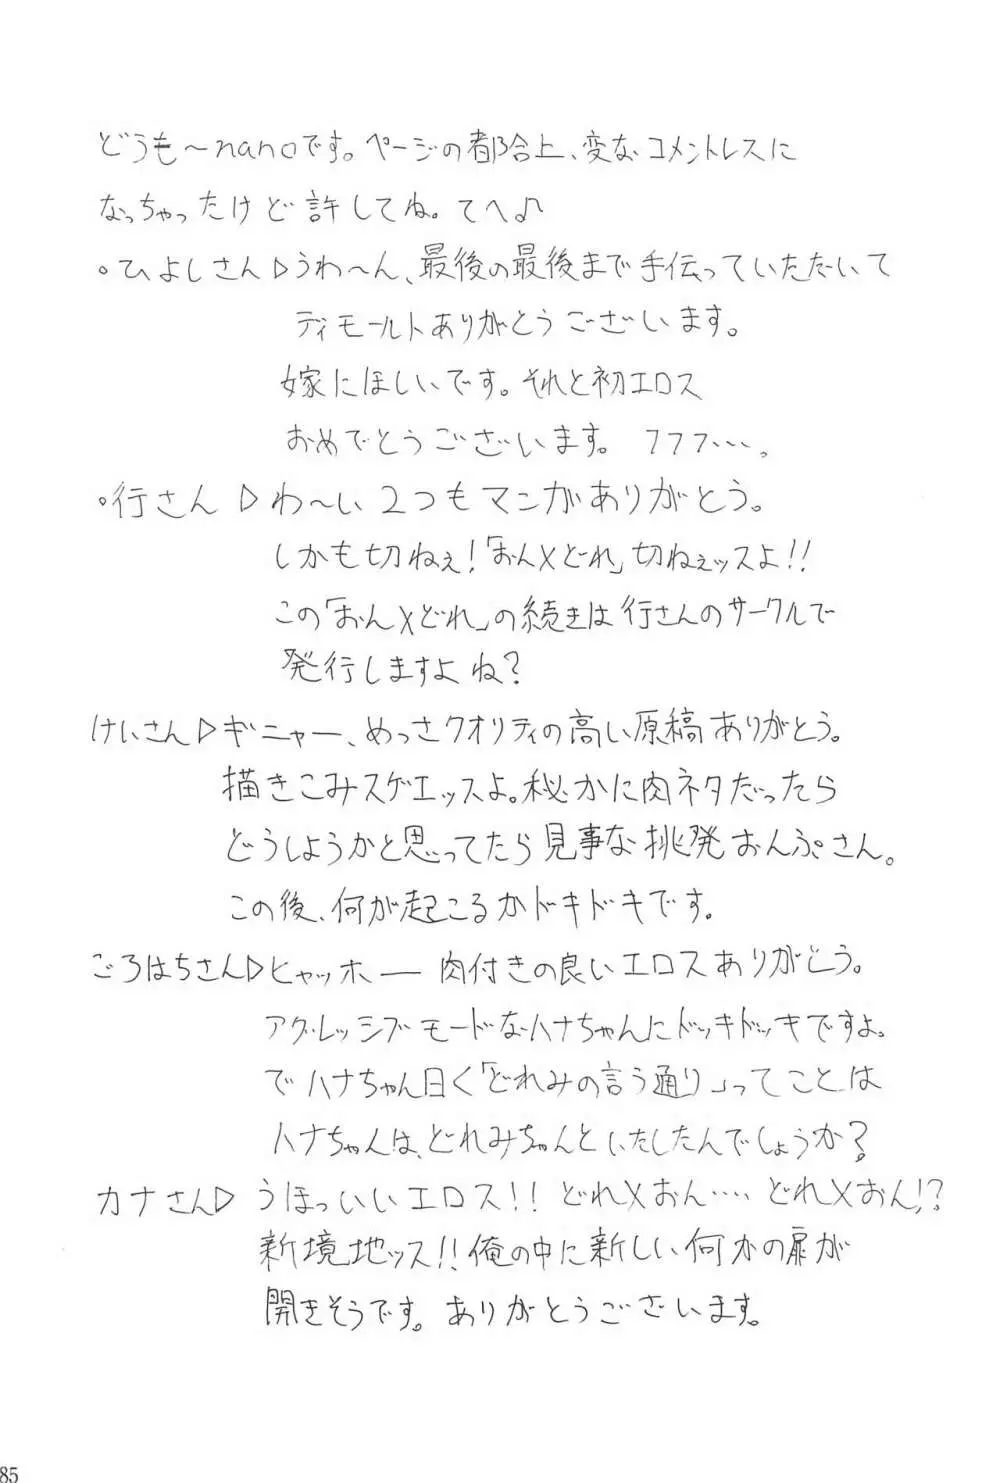 どうも〜nanoです。ページの都合上、変なコメントレスに
なっちゃったけど許してね。てへ♪
。ひよしさん▷うわ〜ん、最後の最後まで手伝っていただいて
ディモールトありがとうございます。
嫁にほしいです。それと初エロス
おめでとうございます。フフフ…。
。行さん▷わ〜い2つもマンガありがとう。
しかも切ねぇ!「おん×どれ」切ねぇッスよ!!
この「おん×どれ」の続きは行さんのサークルで
発行しますよね?
けいさん▷ギニャー、めっさクオリティの高い原稿ありがとう。
描きこみスゲエッスよ。秘かに肉ネタだったら
どうしようかと思ってたら見事な挑発おんぷさん。
この後、何が起こるかドキドキです。
ごろはちさん▷ヒャッホー肉付きの良いエロスありがとう。
アグレッシブモードなハナちゃんにドッキドッキですよ。
でハナちゃん曰く「どれみの言う通り」ってことは
ハナちゃんは、どれみちゃんといたしたんでしょうか?
カナさん▷うほっいいエロス!!どれ×おん….どれ×おん!?
新境地ッス!!俺の中に新しい何かの扉が
開きそうです。ありがとうございます。
85